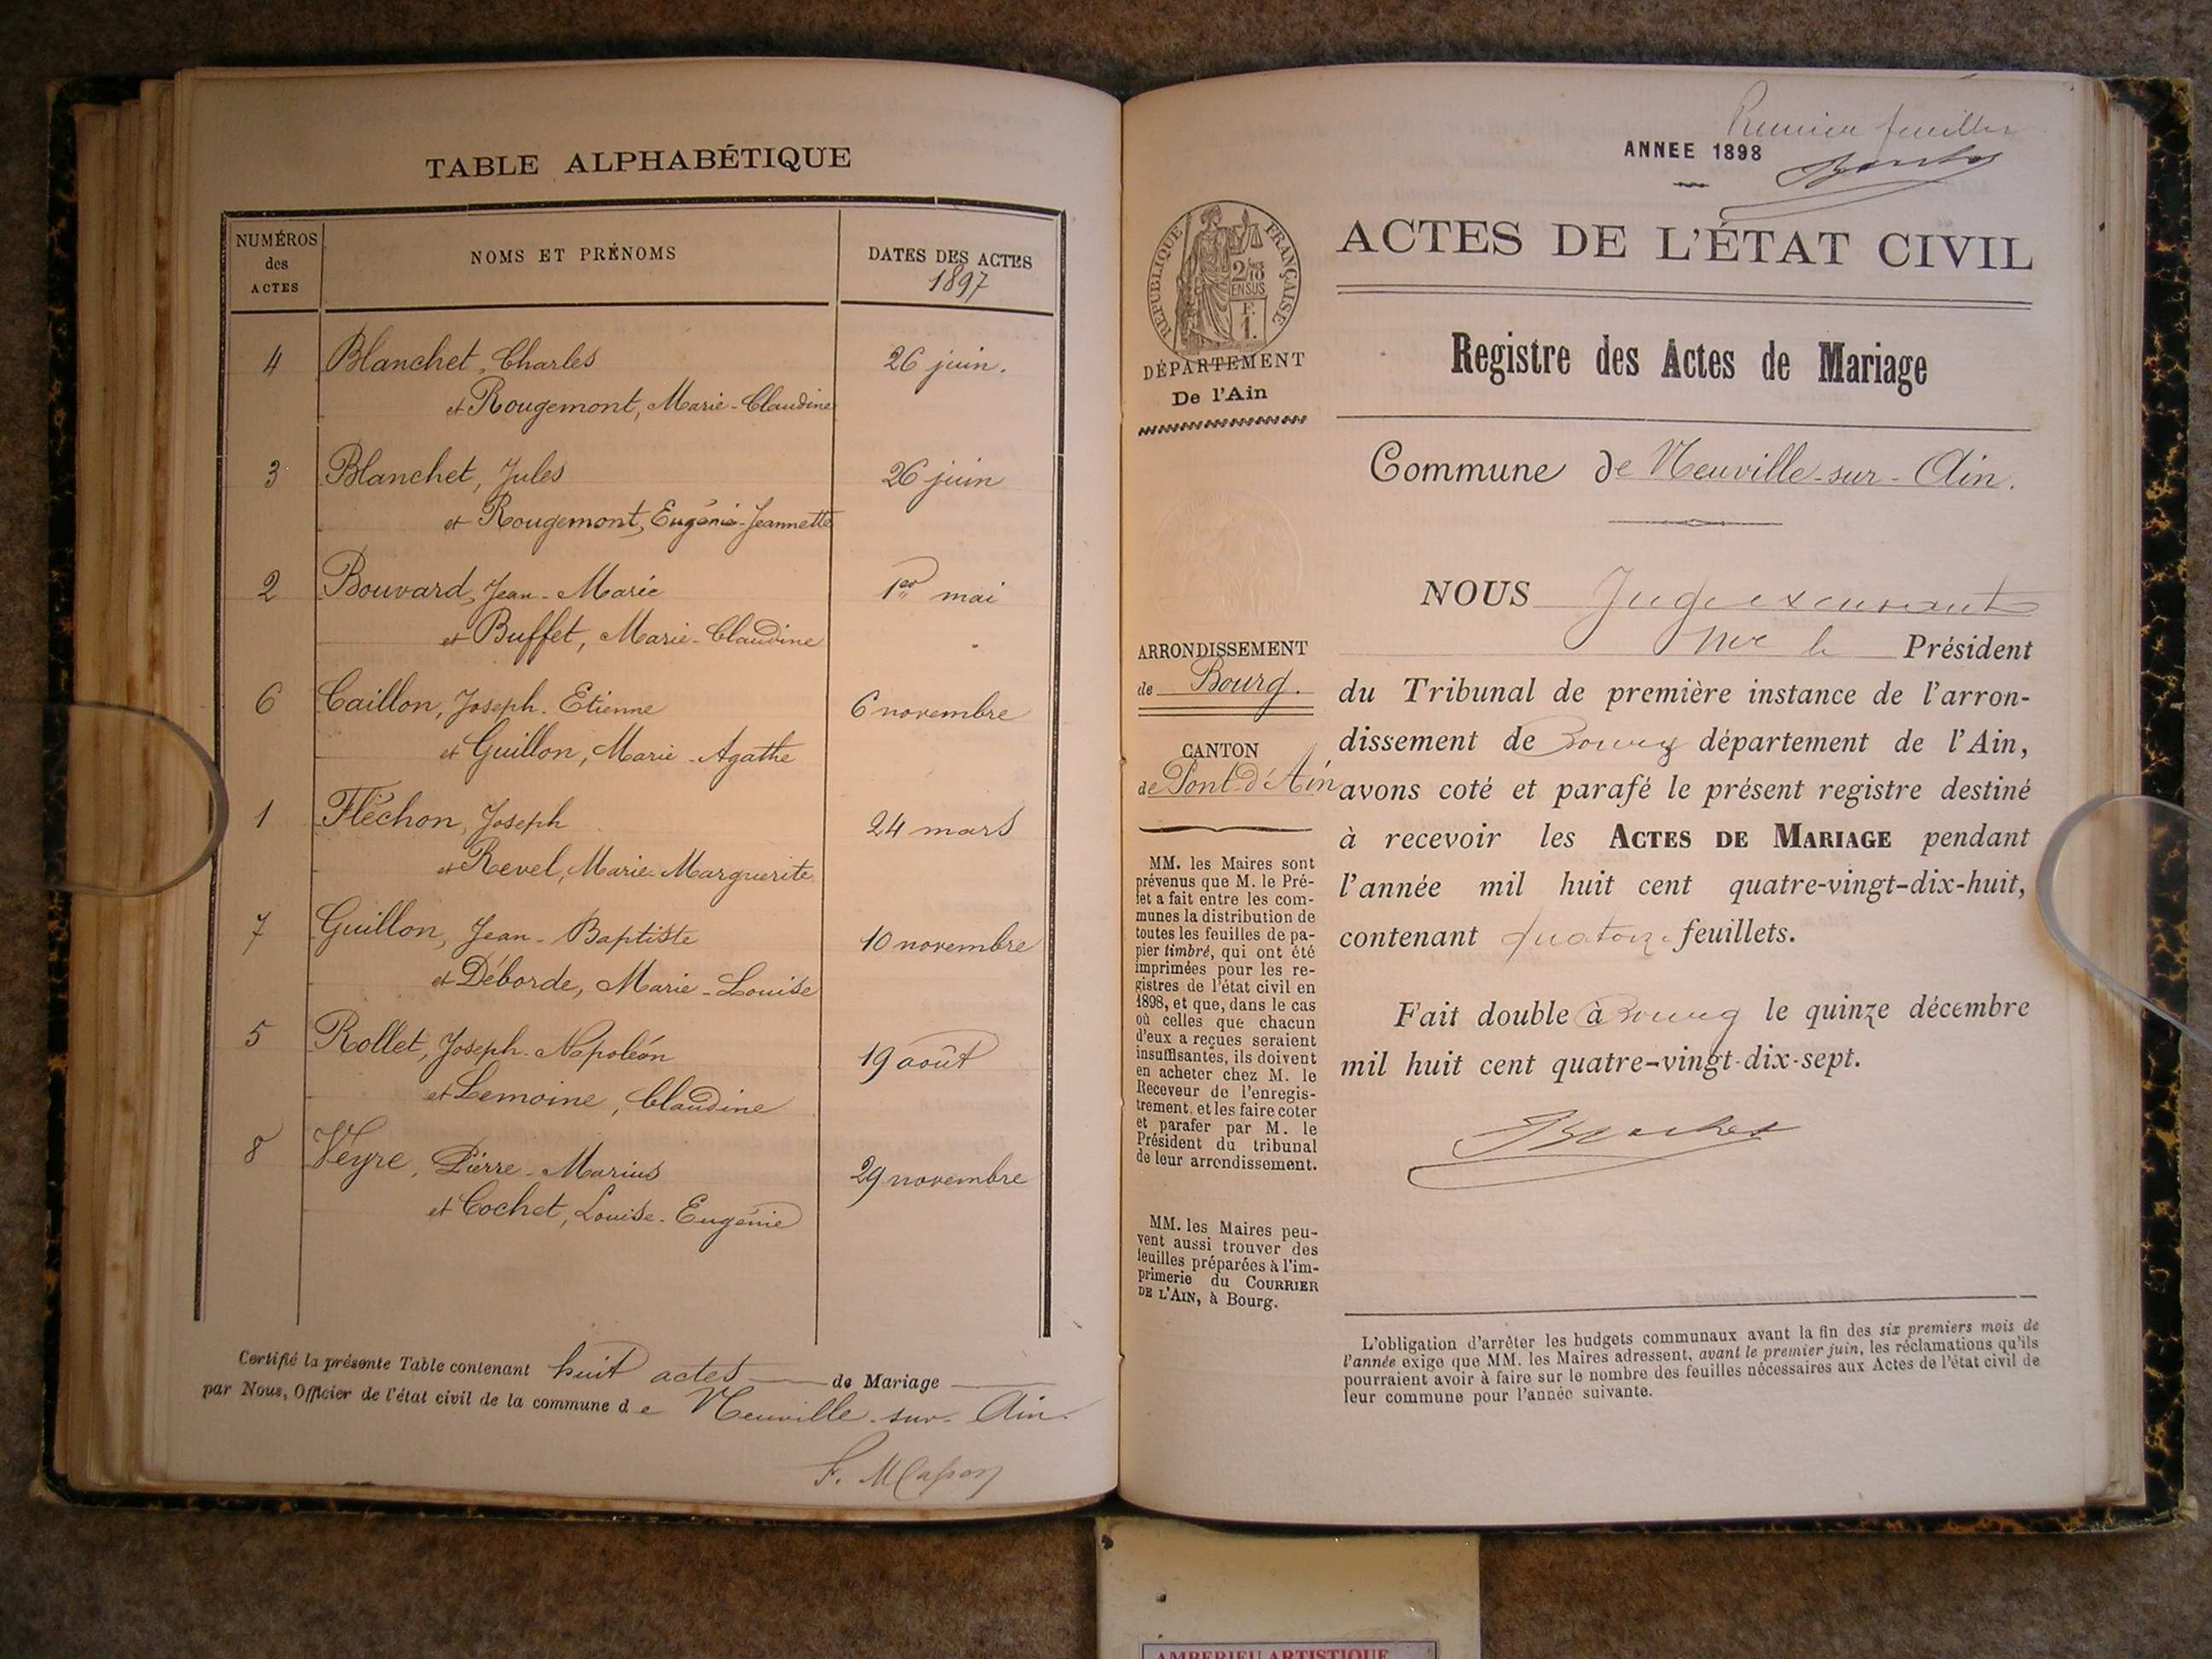 TABLE ALPHABÉTIQUE
NUMÉROS
des
ACTES
NOMS ET PRÉNOMS
DATES DES ACTES
1897
4 Blanchet, Charles 26 juin.
et Rougemont, Marie-Claudine
3 Blanchet, Jules 26 juin
et Rougemont, Eugénie-Jeannette
2 Bouvard, Jean-Marie 1er mai
et Buffet, Marie-Claudine
6 Caillon, Joseph-Etienne 6 novembre
et Guillon, Marie-Agathe
1 Fléchon, Joseph 24 mars
et Revel, Marie-Marguerite
7 Guillon, Jean-Baptiste 10 novembre
et Déborde, Marie-Louise
5 Rollet, Joseph-Napoléon 19 août
et Lemoine, Claudine
8 Veyre, Pierre-Marius 29 novembre
et Cochet, Louise-Eugénie
Certifié la présente Table contenant huit actes de Mariage
par Nous, Officier de l'état civil de la commune de Neuville-sur-Ain
Premier feuillet
ANNEE 1898
RÉPUBLIQUE FRANÇAISE
2/10
EN SUS
F.
1.
DÉPARTEMENT
De l'Ain
ARRONDISSEMENT
de Bourg.
CANTON
de Pont-d'Ain
MM. les Maires sont
prévenus que M. le Pré-
fet a fait entre les com-
munes la distribution de
toutes les feuilles de pa-
pier timbré, qui ont été
imprimées pour les re-
gistres de l'état civil en
1898, et que, dans le cas
où celles que chacun
d'eux a reçues seraient
insuffisantes, ils doivent
en acheter chez M. le
Receveur de l'enregis-
trement, et les faire coter
et parafer par M. le
Président du tribunal
de leur arrondissement.
MM. les Maires peu-
vent aussi trouver des
feuilles préparées à l'im-
primerie du COURRIER
DE L'AIN, à Bourg.
ACTES DE L'ÉTAT CIVIL
Registre des Actes de Mariage
Commune de Neuville-sur-Ain.
NOUS Juge
le Président
du Tribunal de première instance de l'arron-
dissement de Bourg département de l'Ain,
avons coté et parafé le présent registre destiné
à recevoir les ACTES DE MARIAGE pendant
l'année mil huit cent quatre-vingt-dix-huit,
contenant quatorze feuillets.
Fait double à Bourg le quinze décembre
mil huit cent quatre-vingt-dix-sept.
L'obligation d'arrêter les budgets communaux avant la fin des six premiers mois de
l'année exige que MM. les Maires adressent, avant le premier juin, les réclamations qu'ils
pourraient avoir à faire sur le nombre des feuilles nécessaires aux Actes de l'état civil de
leur commune pour l'année suivante.
AMBERIEU ARTISTIQUE